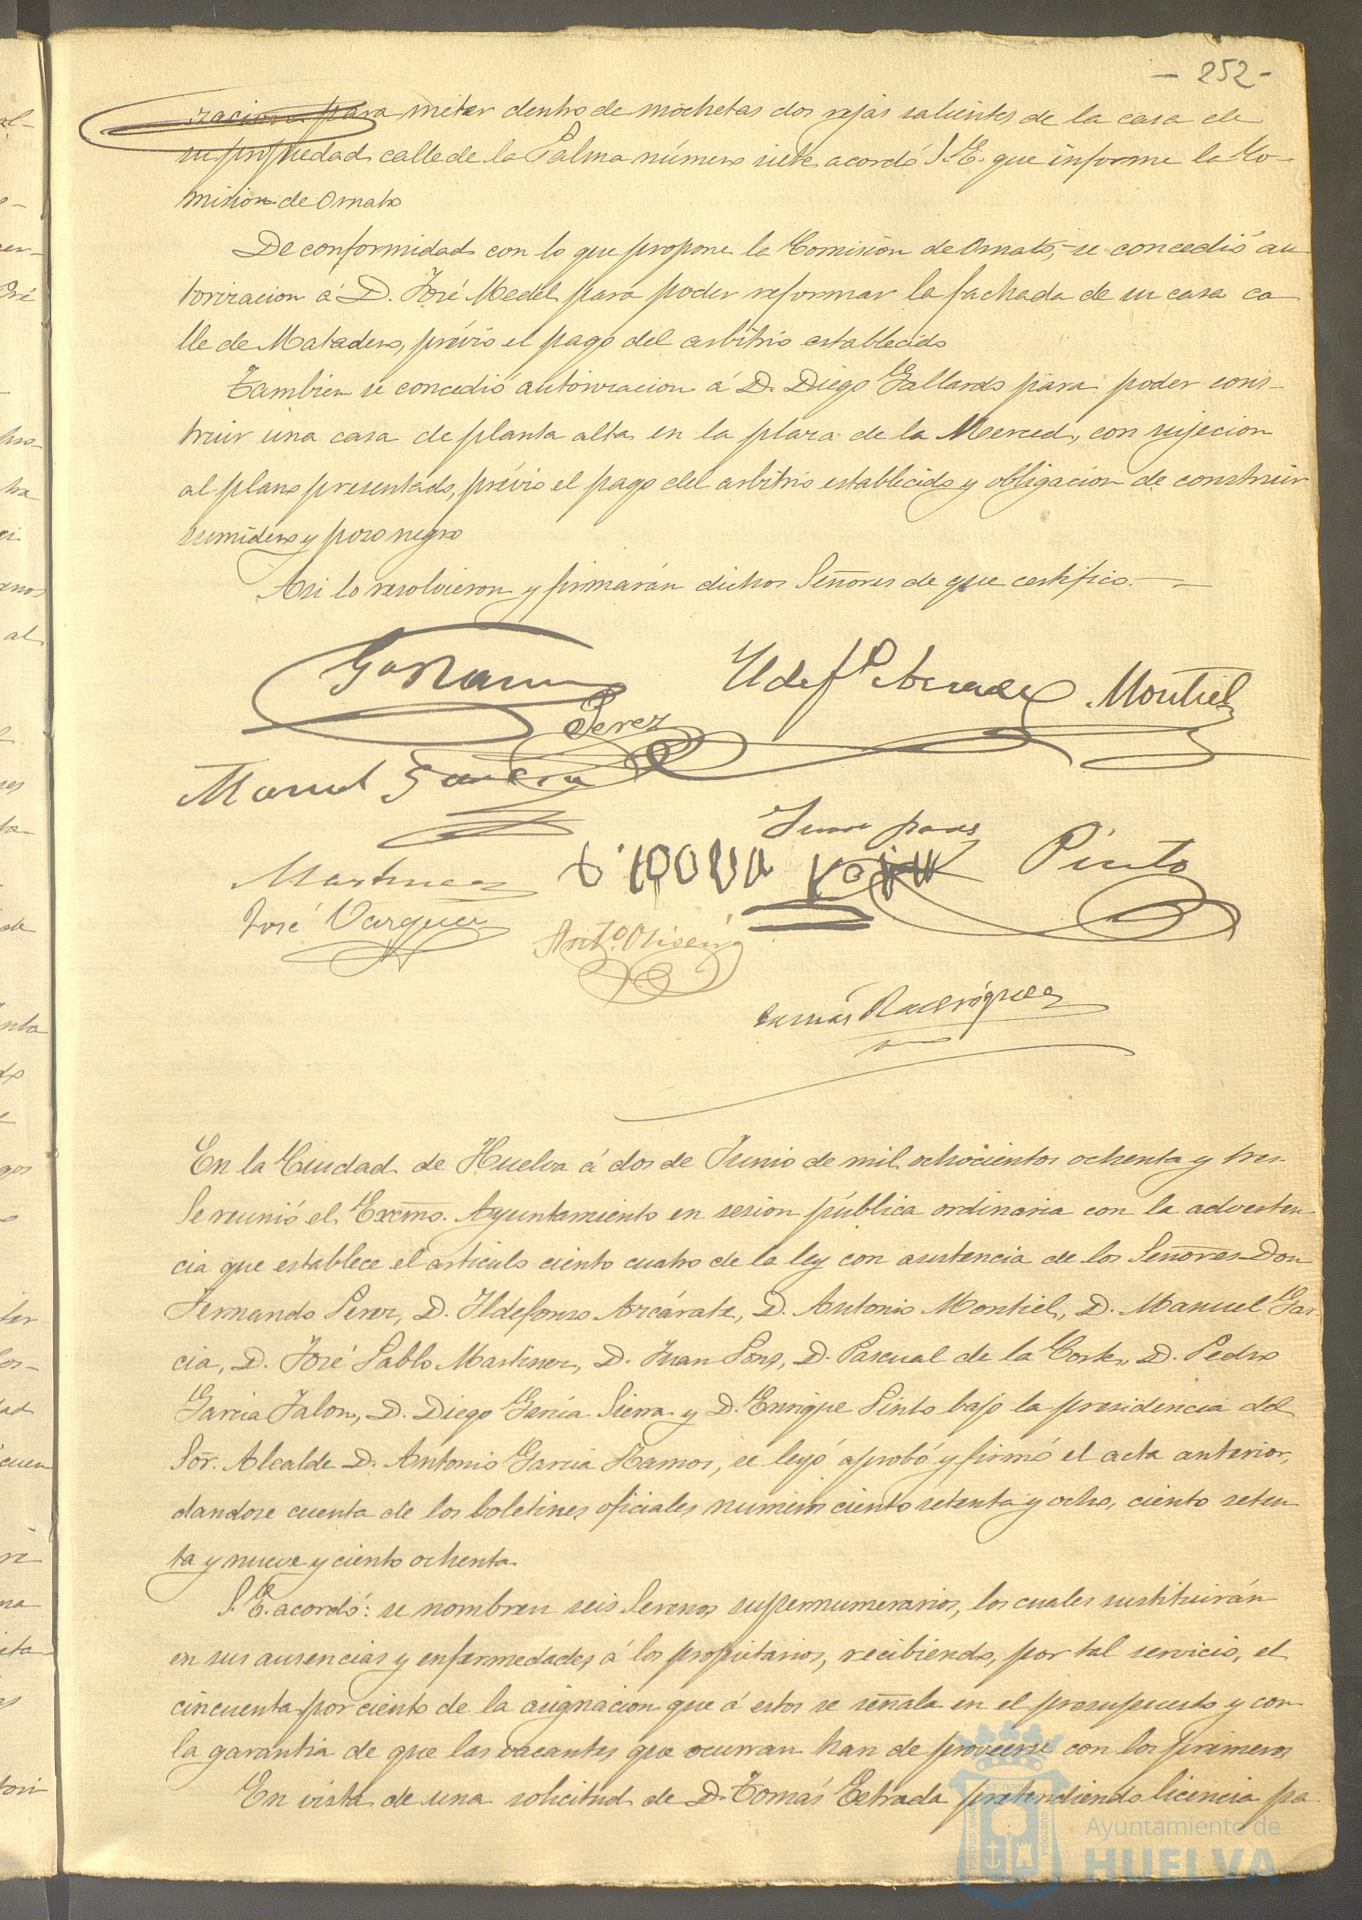 - 252 -
racion para meter dentro de mochetas dos rejas salientes de la casa de
su propiedad calle de la Palma número siete acordó S.E. que informe la Co-
mision de Ornato
De conformidad con lo que propone la Comisión de Ornato, se concedió au
torizacion á D. José Medel para poder reformar la fachada de su casa ca
lle de Matadero, prévio el pago del arbitrio establecido
Tambien se concedió autorizacion á D. Diego Gallardo para poder cons-
truir una casa de planta alta en la plaza de la Merced, con sujecion
al plano presentado, prévio el pago del arbitrio establecido y obligación de construir
sumidero y pozo negro
Asi lo resolvieron y firmarán dichos Señores de que certifico.
Ga Ramos
Ildefº Arcarate Montiel
Perez
Manuel Garcia
Juan pons
Martinez
Pinto
José Vargues
Antº. Olivería
Tomás Rodriguez
En la Ciudad de Huelva á dos de Junio de mil ochocientos ochenta y tres
Se reunió el Excmo. Ayuntamiento en sesion pública ordinaria con la adverten
cia que establece el articulo ciento cuatro de la ley con asistencia de los Señores Don
Fernando Perez, D. Ildefonso Arcárate, D. Antonio Montiel, D. Manuel Gar
cia, D. José Pablo Martinez, D. Juan Pons, D. Pascual de la Corte, D. Pedro
Garcia Jalon, D. Diego Garcia Sierra y D. Enrique Pinto bajo la presidencia del
Sör. Alcalde D. Antonio Garcia Ramos, se leyó aprobó y firmó el acta anterior,
dandose cuenta de los boletines oficiales numeros ciento setenta y ocho, ciento seten
ta y nueve y ciento ochenta.
S.E. acordó: se nombren seis Serenos supernumerarios, los cuales sustituirán
en sus ausencias y enfermedades á los propietarios, recibiendo, por tal servicio, el
cincuenta por ciento de la asignacion que á estos se señala en el presupuesto y con
la garantia de que las vacantes que ocurran han de proveerse con los primeros
En vista de una solicitud de D. Tomás Estrada pretendiendo licencia pa
Ayuntamiento de
HUELVA